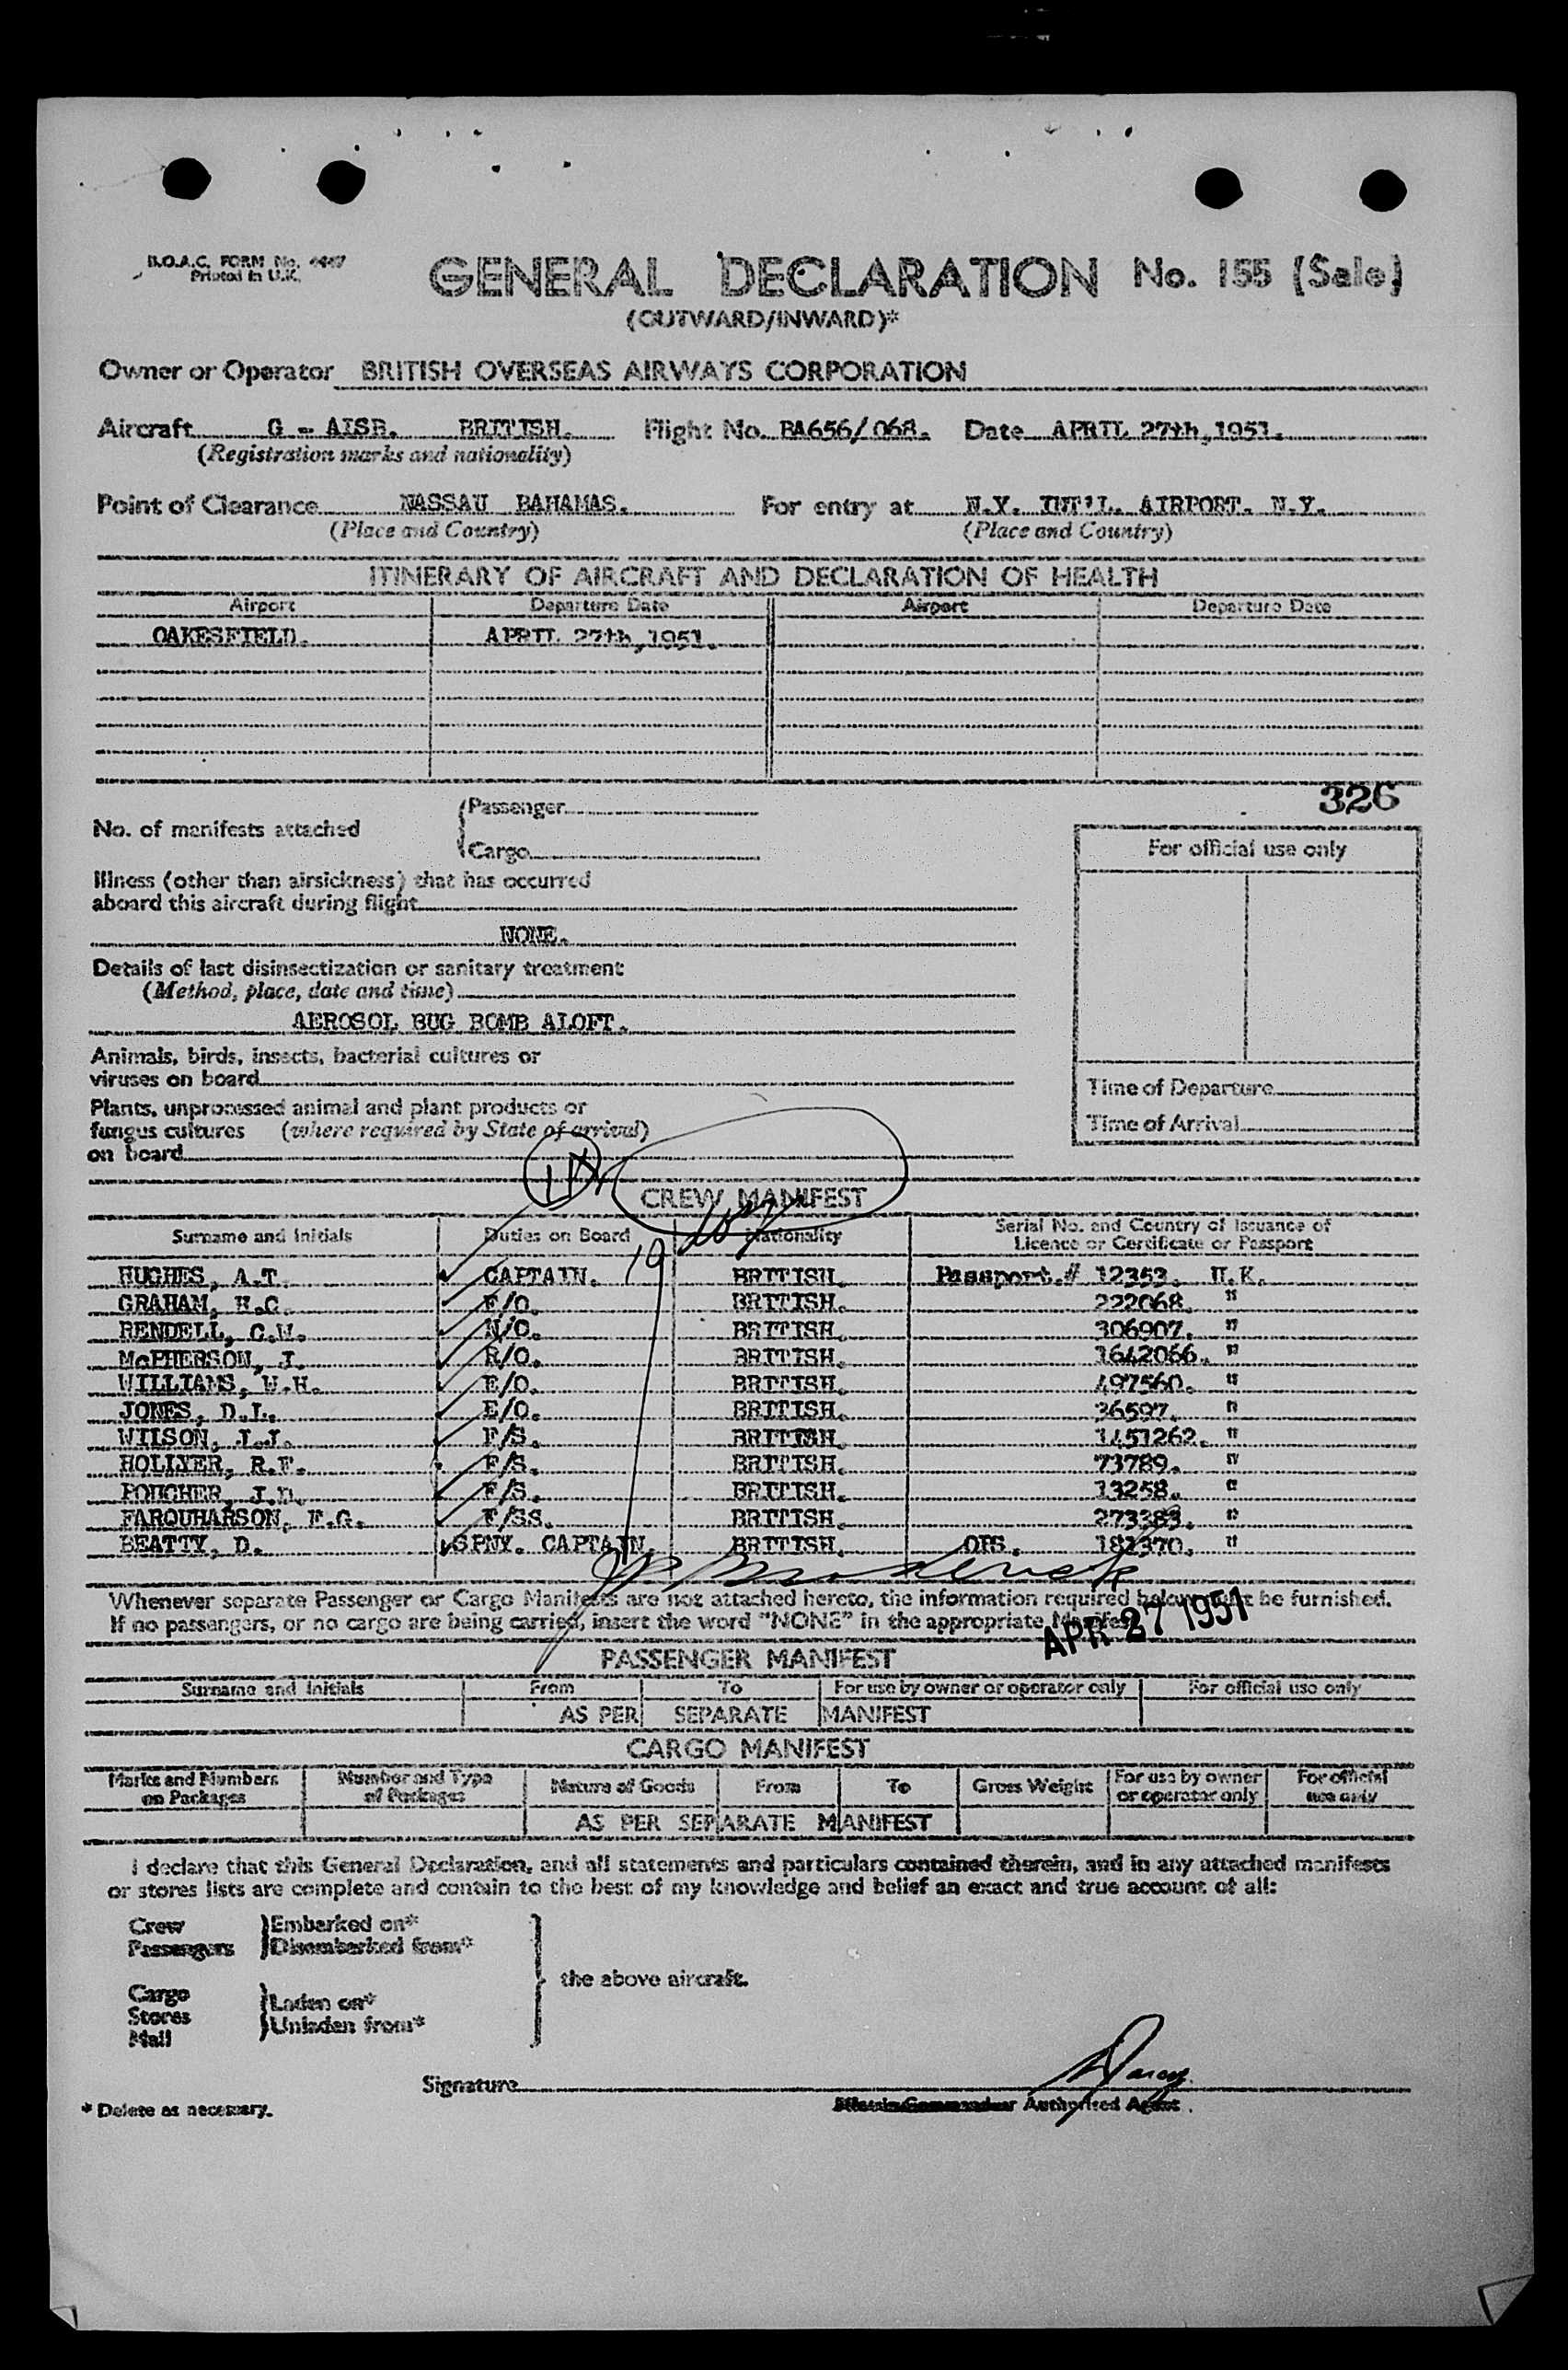 B.O.A.C. FORM No. 4447
Printed in U.K.
GENERAL DECLARATION No. 155 (Sale)
(OUTWARD/INWARD)*
Owner or Operator BRITISH OVERSEAS AIRWAYS CORPORATION
Aircraft G - AISB. BRITISH. Flight No. BA656/068. Date APRIL 27th, 1951.
(Registration marks and nationality)
Point of Clearance NASSAU BAHAMAS. For entry at N.Y. INT'L. AIRPORT. N.Y.
(Place and Country) (Place and Country)
ITINERARY OF AIRCRAFT AND DECLARATION OF HEALTH
Airport Departure Date Airport Departure Date
OAKESFIELD. APRIL 27th, 1951.
326
No. of manifests attached
Passenger
Cargo
For official use only
Illness (other than airsickness) that has occurred
aboard this aircraft during flight
NONE.
Details of last disinsectization or sanitary treatment
(Method, place, date and time)
AEROSOL BUG BOMB ALOFT.
Animals, birds, insects, bacterial cultures or
viruses on board
Time of Departure
Plants, unprocessed animal and plant products or
fungus cultures (where required by State of arrival)
on board
Time of Arrival
CREW MANIFEST
Surname and Initials Duties on Board Nationality Serial No. and Country of Issuance of
Licence or Certificate or Passport
HUGHES, A.T. CAPTAIN. BRITISH. Passport.# 12353. U.K.
GRAHAM, H.C. F/O. BRITISH. 222068. "
RENDELL, C.W. N/O. BRITISH. 306907. "
McPHERSON, J. R/O. BRITISH. 1642066. "
WILLIAMS, W.H. E/O. BRITISH. 497560. "
JONES, D.L. E/O. BRITISH. 36597. "
WILSON, I.J. F/S. BRITISH. 1451262. "
HOLLYER, R.F. F/S. BRITISH. 73789. "
POUCHER, J.D. F/S. BRITISH. 13258. "
FARQUHARSON, F.G. F/SS. BRITISH. 273383. "
BEATTY, D. SPNY. CAPTAIN. BRITISH. OFS. 181370. "
Whenever separate Passenger or Cargo Manifests are not attached hereto, the information required below must be furnished.
If no passengers, or no cargo are being carried, insert the word "NONE" in the appropriate Manifest.
APR 27 1951
PASSENGER MANIFEST
Surname and Initials From To For use by owner or operator only For official use only
AS PER SEPARATE MANIFEST
CARGO MANIFEST
Marks and Numbers on Packages Number and Type of Packages Nature of Goods From To Gross Weight For use by owner or operator only For official use only
AS PER SEPARATE MANIFEST
I declare that this General Declaration, and all statements and particulars contained therein, and in any attached manifests
or stores lists are complete and contain to the best of my knowledge and belief an exact and true account of all:
Crew Embarked on*
Passengers Disembarked from*
the above aircraft.
Cargo
Stores Laden on*
Mail Unladen from*
Signature
* Delete as necessary.
Authorised Agent